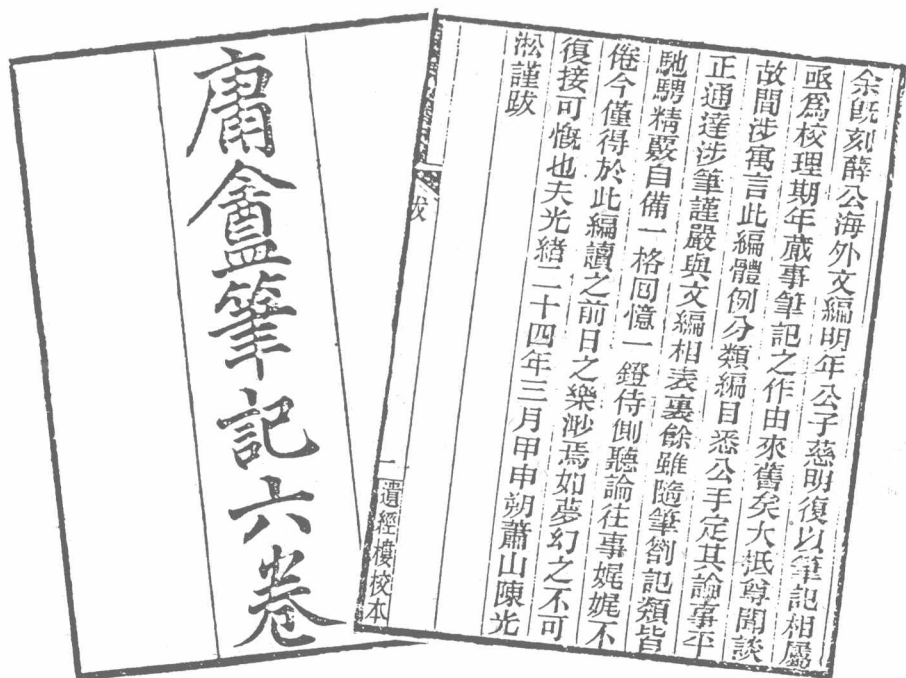 庸盦筆記六卷
余既刻薛公海外文編明年公子慈明復以筆記相屬
亟爲校理期年蕆事筆記之作由來舊矣大抵尊聞談
故間涉寓言此編體例分類編目悉公手定其論事平
正通達涉筆謹嚴與文編相表裏餘雖隨筆箚記類皆
馳騁精覈自備一格囘憶一鐙侍側聽論往事娓娓不
倦今僅得於此編讀之前日之樂渺焉如夢幻之不可
復接可慨也夫光緒二十四年三月甲申朔蕭山陳光
淞謹跋
跋
一
遺經樓校本